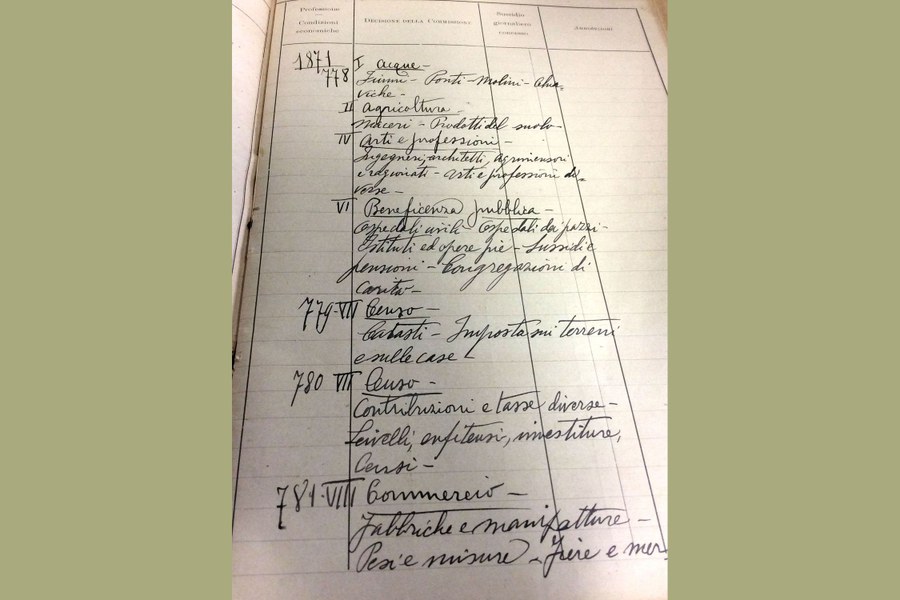 Professione
Condizioni economiche
DECISIONE DELLA COMMISSIONE
Sussidio giornaliero concesso
Annotazioni
1871
778 I Acque -
Fiumi - Ponti - Molini - Chia-
viche -
II Agricoltura -
Maceri - Prodotti del suolo -
IV Arti e professioni -
Ingegneri, architetti, agrimensori
e ragionati - Arti e professioni di-
verse -
VI Beneficenza pubblica -
Ospedali civili - Ospedali dei pazzi -
Istituti ed opere pie - Sussidi e
pensioni - Congregazioni di
Carità -
779 VII Censo -
Catasti - Imposta sui terreni
e sulle case -
780 VII Censo -
Contribuzioni e tasse diverse -
Livelli, enfiteusi, investiture,
Censi -
781 VIII Commercio -
Fabbriche e manifatture -
Pesi e misure - Fiere e mer